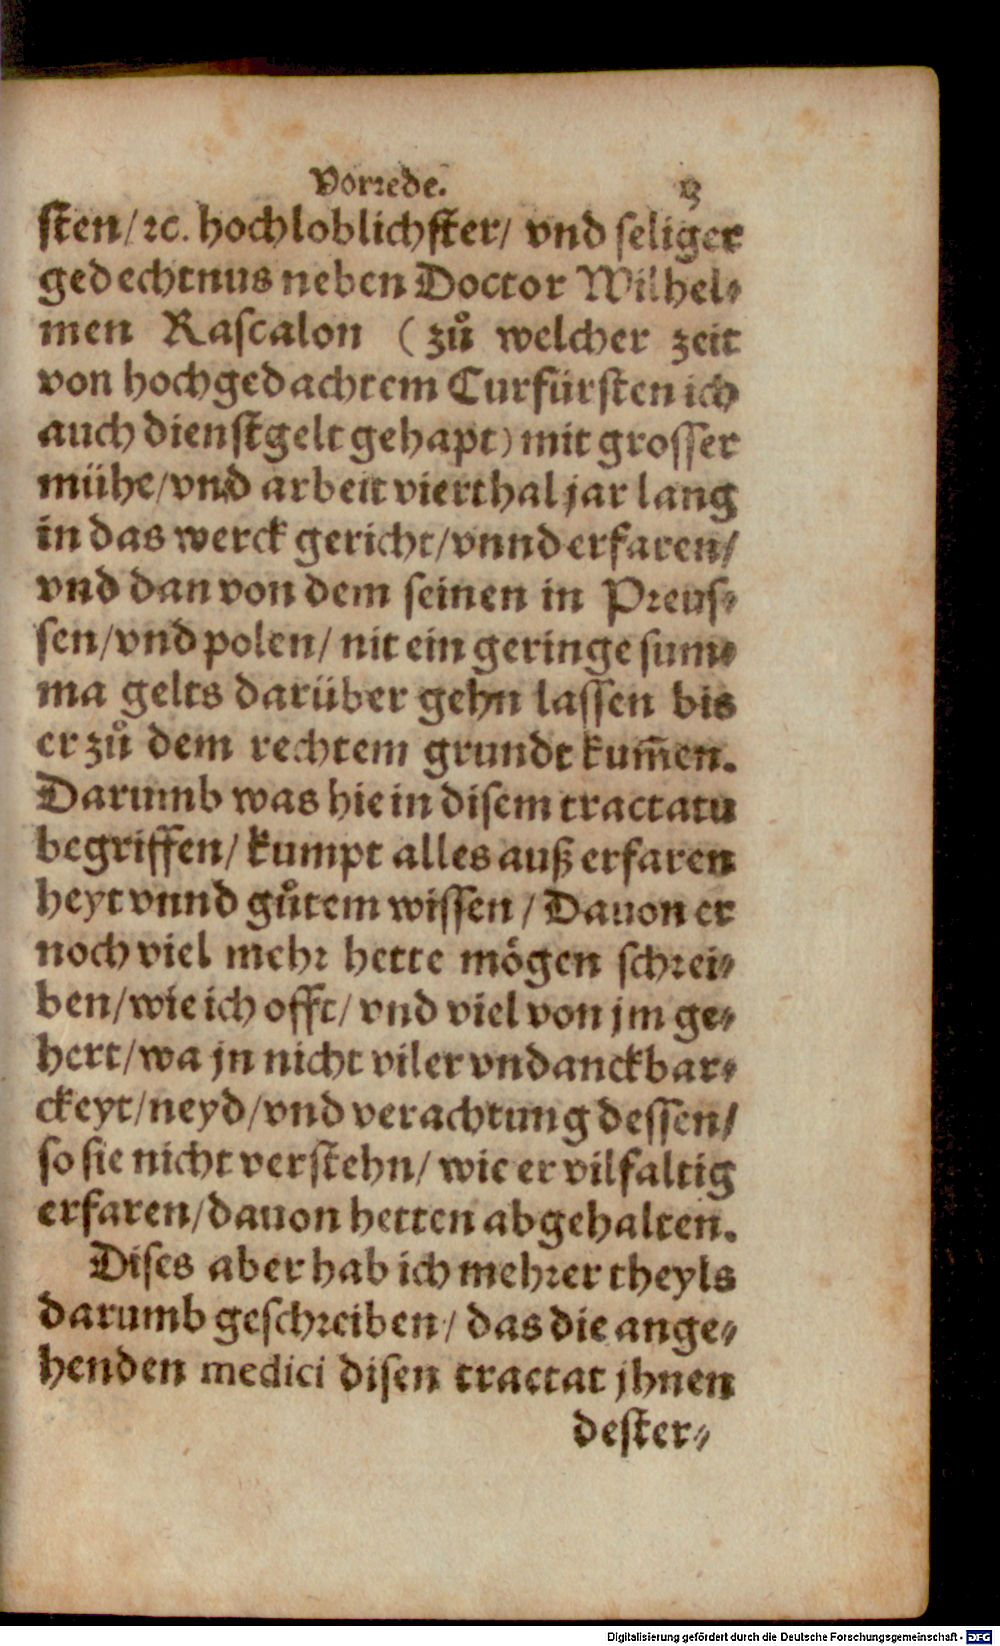 Vorrede. 13
sten/ ꝛc. hochloblichster/ vnd seliger
gedechtnus neben Doctor Wilhel⸗
men Rascalon (zů welcher zeit
von hochgedachtem Curfürsten ich
auch dienstgelt gehapt) mit grosser
mühe/ vnd arbeit vierthal jar lang
in das werck gericht/ vnnd erfaren/
vnd dan von dem seinen in Preus⸗
sen/ vnd polen/ nit ein geringe sum⸗
ma gelts darüber gehn lassen bis
er zů dem rechtem grundt kum̃en.
Darumb was hie in disem tractatu
begriffen/ kumpt alles auß erfaren
heyt vnnd gůtem wissen/ Dauon er
noch viel mehr hette mögen schrei⸗
ben/ wie ich offt/ vnd viel von jm ge⸗
hert/ wa jn nicht viler vndanckbar⸗
ckeyt/ neyd/ vnd verachtung dessen/
so sie nicht verstehn/ wie er vilfaltig
erfaren/ dauon hetten abgehalten.
Dises aber hab ich mehrer theyls
darumb geschreiben/ das die ange⸗
henden medici disen tractat jhnen
dester⸗
Digitalisierung gefördert durch die Deutsche Forschungsgemeinschaft - DFG